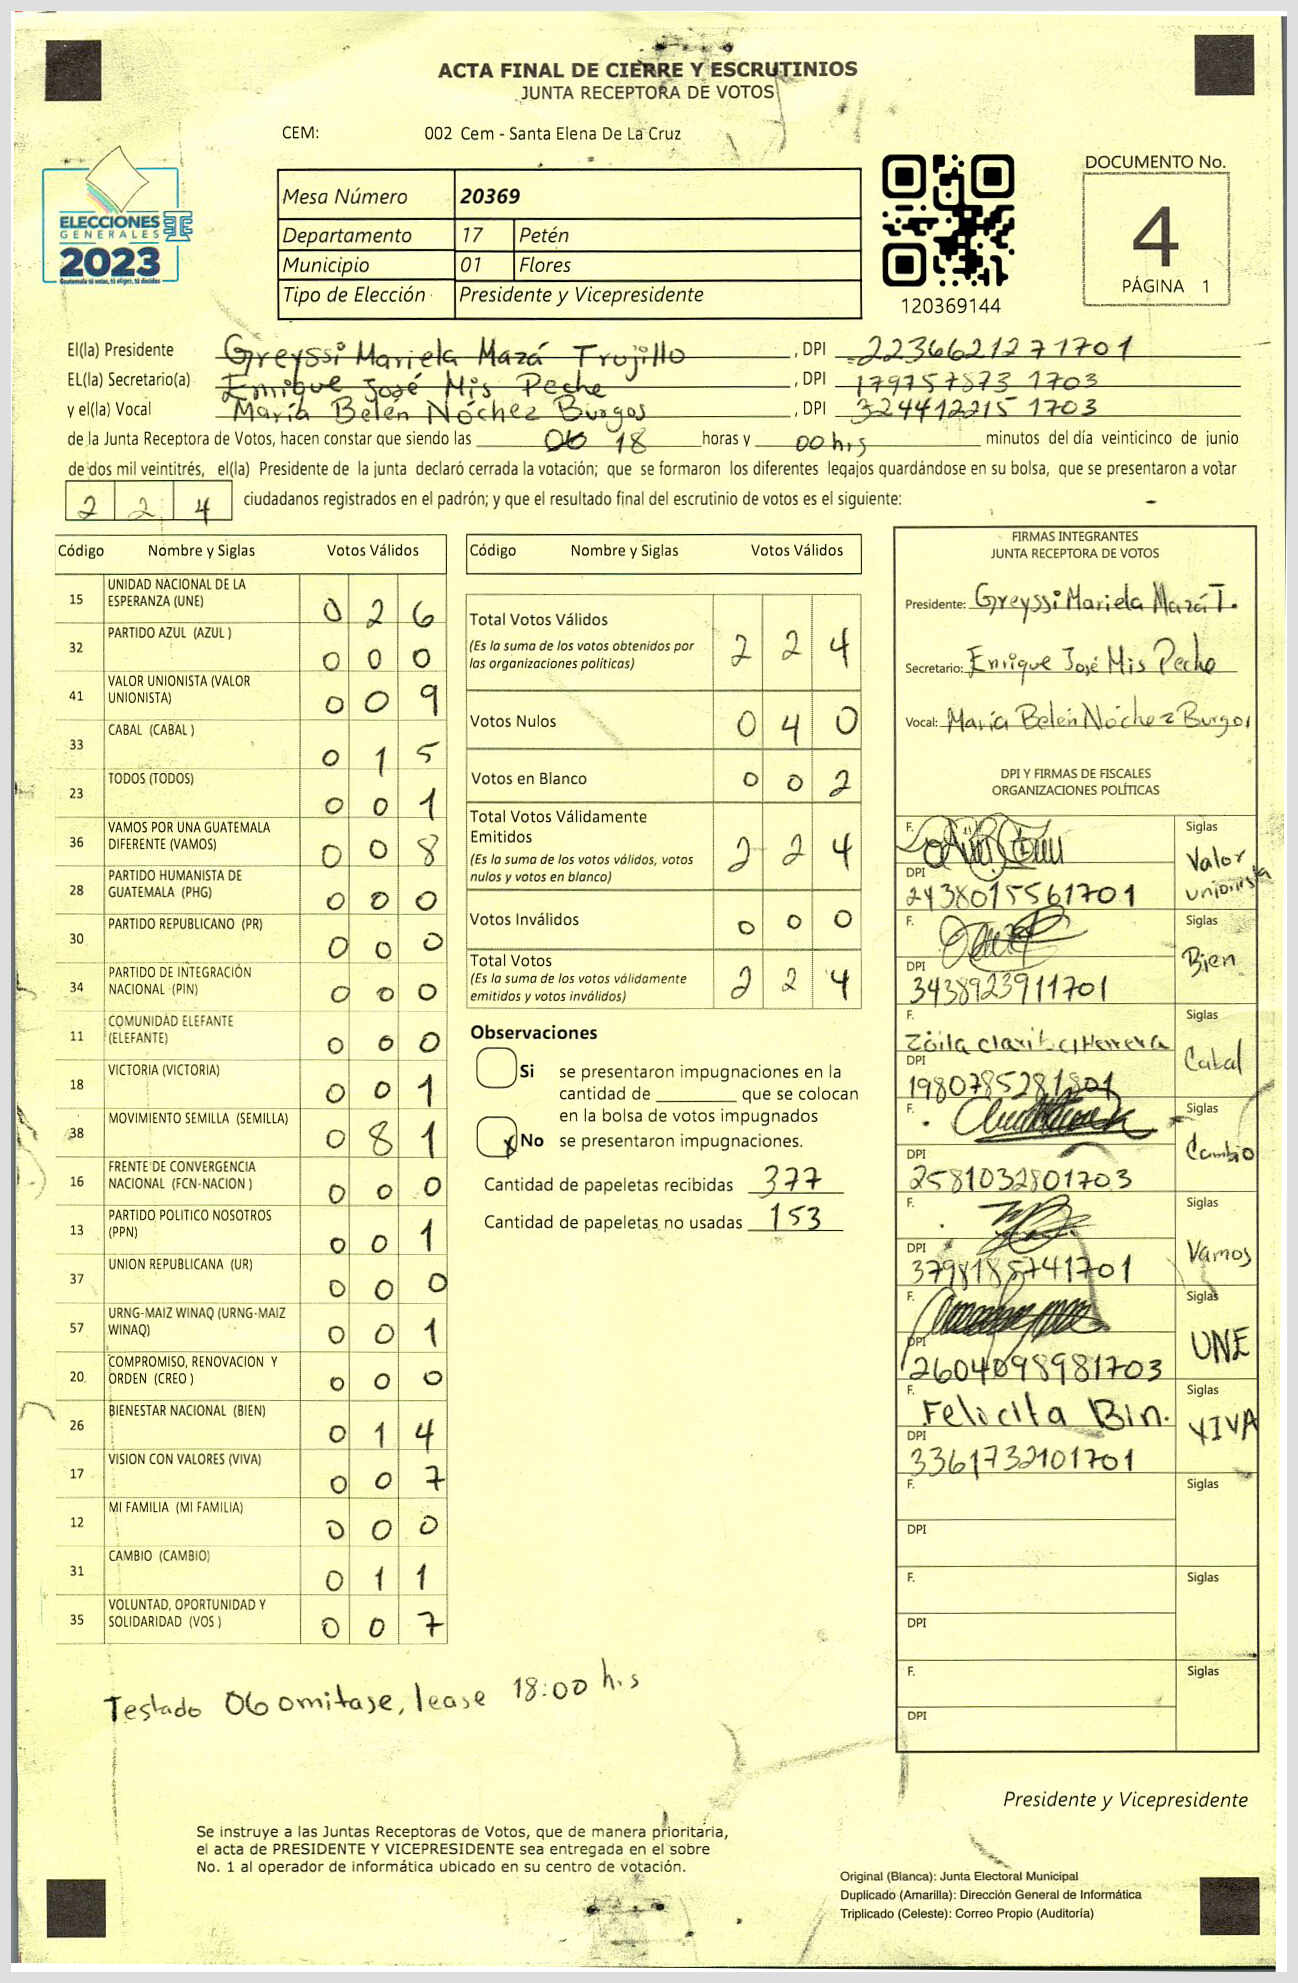 ACTA FINAL DE CIERRE Y ESCRUTINIOS
JUNTA RECEPTORA DE VOTOS
CEM: 002 Cem - Santa Elena De La Cruz
ELECCIONES
GENERALES
2023
Guatemala tú votas, tú eliges, tú decides
Mesa Número 20369
Departamento 17 Petén
Municipio 01 Flores
Tipo de Elección Presidente y Vicepresidente
120369144
DOCUMENTO No.
4
PÁGINA 1
El(la) Presidente Greyssi Mariela Mazá Trujillo , DPI 2236621271701
EL(la) Secretario(a) Enrique José Mis Peche , DPI 179757873 1703
y el(la) Vocal María Belén Nóchez Burgos , DPI 324412215 1703
de la Junta Receptora de Votos, hacen constar que siendo las 06 18 horas y 00 hrs minutos del día veinticinco de junio
de dos mil veintitrés, el(la) Presidente de la junta declaró cerrada la votación; que se formaron los diferentes legajos guardándose en su bolsa, que se presentaron a votar
2 2 4 ciudadanos registrados en el padrón; y que el resultado final del escrutinio de votos es el siguiente:
Código Nombre y Siglas Votos Válidos
15 UNIDAD NACIONAL DE LA ESPERANZA (UNE) 0 2 6
32 PARTIDO AZUL (AZUL ) 0 0 0
41 VALOR UNIONISTA (VALOR UNIONISTA) 0 0 9
33 CABAL (CABAL ) 0 1 5
23 TODOS (TODOS) 0 0 1
36 VAMOS POR UNA GUATEMALA DIFERENTE (VAMOS) 0 0 8
28 PARTIDO HUMANISTA DE GUATEMALA (PHG) 0 0 0
30 PARTIDO REPUBLICANO (PR) 0 0 0
34 PARTIDO DE INTEGRACIÓN NACIONAL (PIN) 0 0 0
11 COMUNIDAD ELEFANTE (ELEFANTE) 0 0 0
18 VICTORIA (VICTORIA) 0 0 1
38 MOVIMIENTO SEMILLA (SEMILLA) 0 8 1
16 FRENTE DE CONVERGENCIA NACIONAL (FCN-NACION ) 0 0 0
13 PARTIDO POLITICO NOSOTROS (PPN) 0 0 1
37 UNION REPUBLICANA (UR) 0 0 0
57 URNG-MAIZ WINAQ (URNG-MAIZ WINAQ) 0 0 1
20 COMPROMISO, RENOVACION Y ORDEN (CREO ) 0 0 0
26 BIENESTAR NACIONAL (BIEN) 0 1 4
17 VISION CON VALORES (VIVA) 0 0 7
12 MI FAMILIA (MI FAMILIA) 0 0 0
31 CAMBIO (CAMBIO) 0 1 1
35 VOLUNTAD, OPORTUNIDAD Y SOLIDARIDAD (VOS ) 0 0 7
Testado 06 omitase, lease 18:00 hrs
Código Nombre y Siglas Votos Válidos
Total Votos Válidos 2 2 4
(Es la suma de los votos obtenidos por
las organizaciones políticas)
Votos Nulos 0 4 0
Votos en Blanco 0 0 2
Total Votos Válidamente Emitidos 2 2 4
(Es la suma de los votos válidos, votos
nulos y votos en blanco)
Votos Inválidos 0 0 0
Total Votos 2 2 4
(Es la suma de los votos válidamente
emitidos y votos inválidos)
Observaciones
Si se presentaron impugnaciones en la
cantidad de ________ que se colocan
en la bolsa de votos impugnados
x No se presentaron impugnaciones.
Cantidad de papeletas recibidas 377
Cantidad de papeletas no usadas 153
FIRMAS INTEGRANTES
JUNTA RECEPTORA DE VOTOS
Presidente: Greyssi Mariela Mazá T.
Secretario: Enrique José Mis Peche
Vocal: María Belén Nóchez Burgos
DPI Y FIRMAS DE FISCALES
ORGANIZACIONES POLÍTICAS
F. Siglas
Valor unionista
DPI 2438015561701
F. Siglas
Bien
DPI 3438923911701
F. Zoila Claribel Herrera Siglas
Cabal
DPI 1980785281801
F. Siglas
Cambio
DPI 2581032801703
F. Siglas
Vamos
DPI 3798185741701
F. Siglas
UNE
DPI 2604098981703
F. Felicita Bin. Siglas
VIVA
DPI 3361732101701
F. Siglas
DPI
F. Siglas
DPI
F. Siglas
DPI
Presidente y Vicepresidente
Se instruye a las Juntas Receptoras de Votos, que de manera prioritaria,
el acta de PRESIDENTE Y VICEPRESIDENTE sea entregada en el sobre
No. 1 al operador de informática ubicado en su centro de votación.
Original (Blanca): Junta Electoral Municipal
Duplicado (Amarilla): Dirección General de Informática
Triplicado (Celeste): Correo Propio (Auditoría)